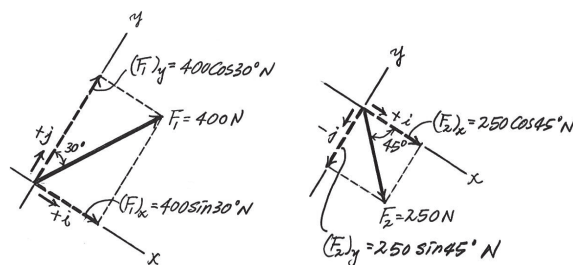 y
(F₁)y = 400cos30° N
F₁ = 400 N
+j
30°
(F₁)x = 400sin30° N
+i
x
y
+i
(F₂)x = 250 cos45° N
-j
45°
x
F₂ = 250 N
(F₂)y = 250 sin45° N